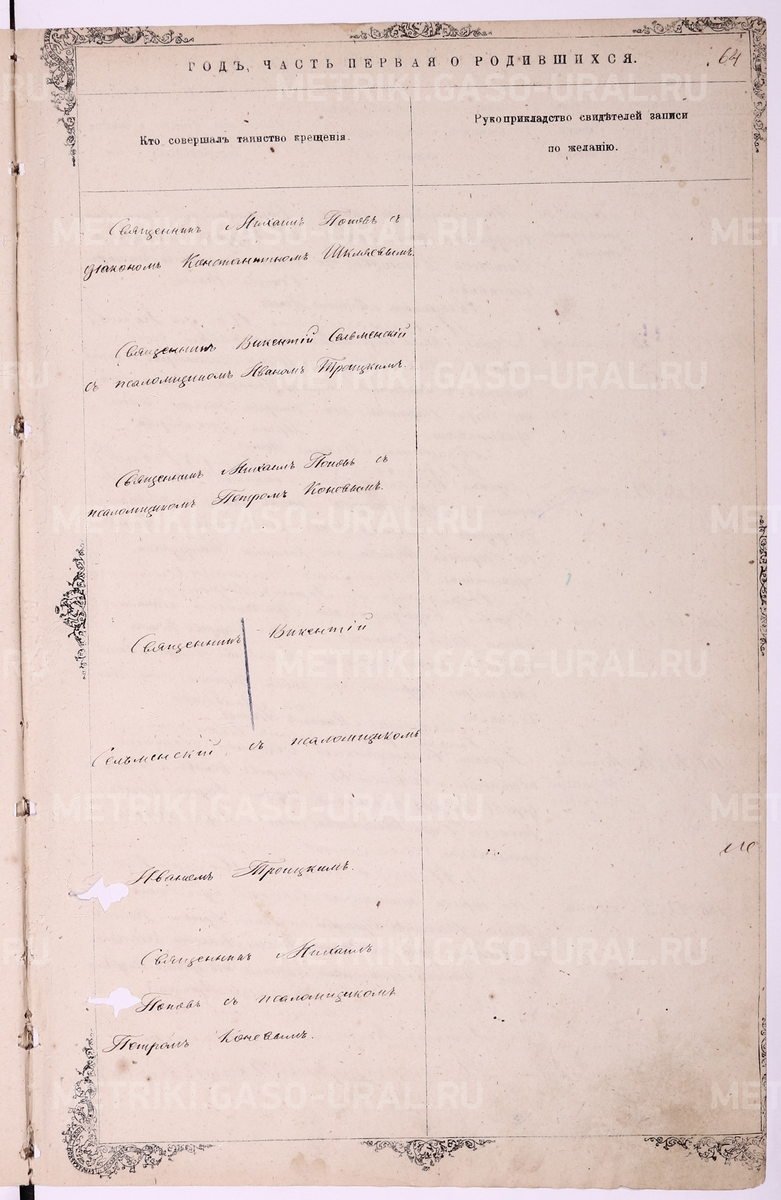 ГОДЪ, ЧАСТЬ ПЕРВАЯ О РОДИВШИХСЯ.
64
Кто совершалъ таинство крещенія.
Рукоприкладство свидѣтелей записи
по желанію.
Священникъ Михаилъ Поповъ съ
діакономъ Константиномъ Шкляевымъ.
Священникъ Викентій Сельменскій
съ псаломщикомъ Иваномъ Троицкимъ.
Священникъ Михаилъ Поповъ съ
псаломщикомъ Петромъ Коневымъ.
Священникъ Викентій
Сельменскій съ псаломщикомъ
Иваномъ Троицкимъ.
Священникъ Михаилъ
Поповъ съ псаломщикомъ
Петромъ Коневымъ.
METRIKI.GASO-URAL.RU